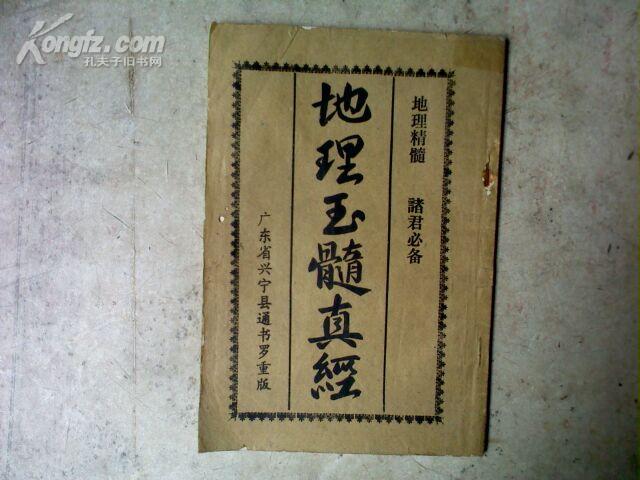 Kongfz.com
孔夫子旧书网
地理精髓 諸君必备
地理玉髓真經
广东省兴宁县通书罗重版